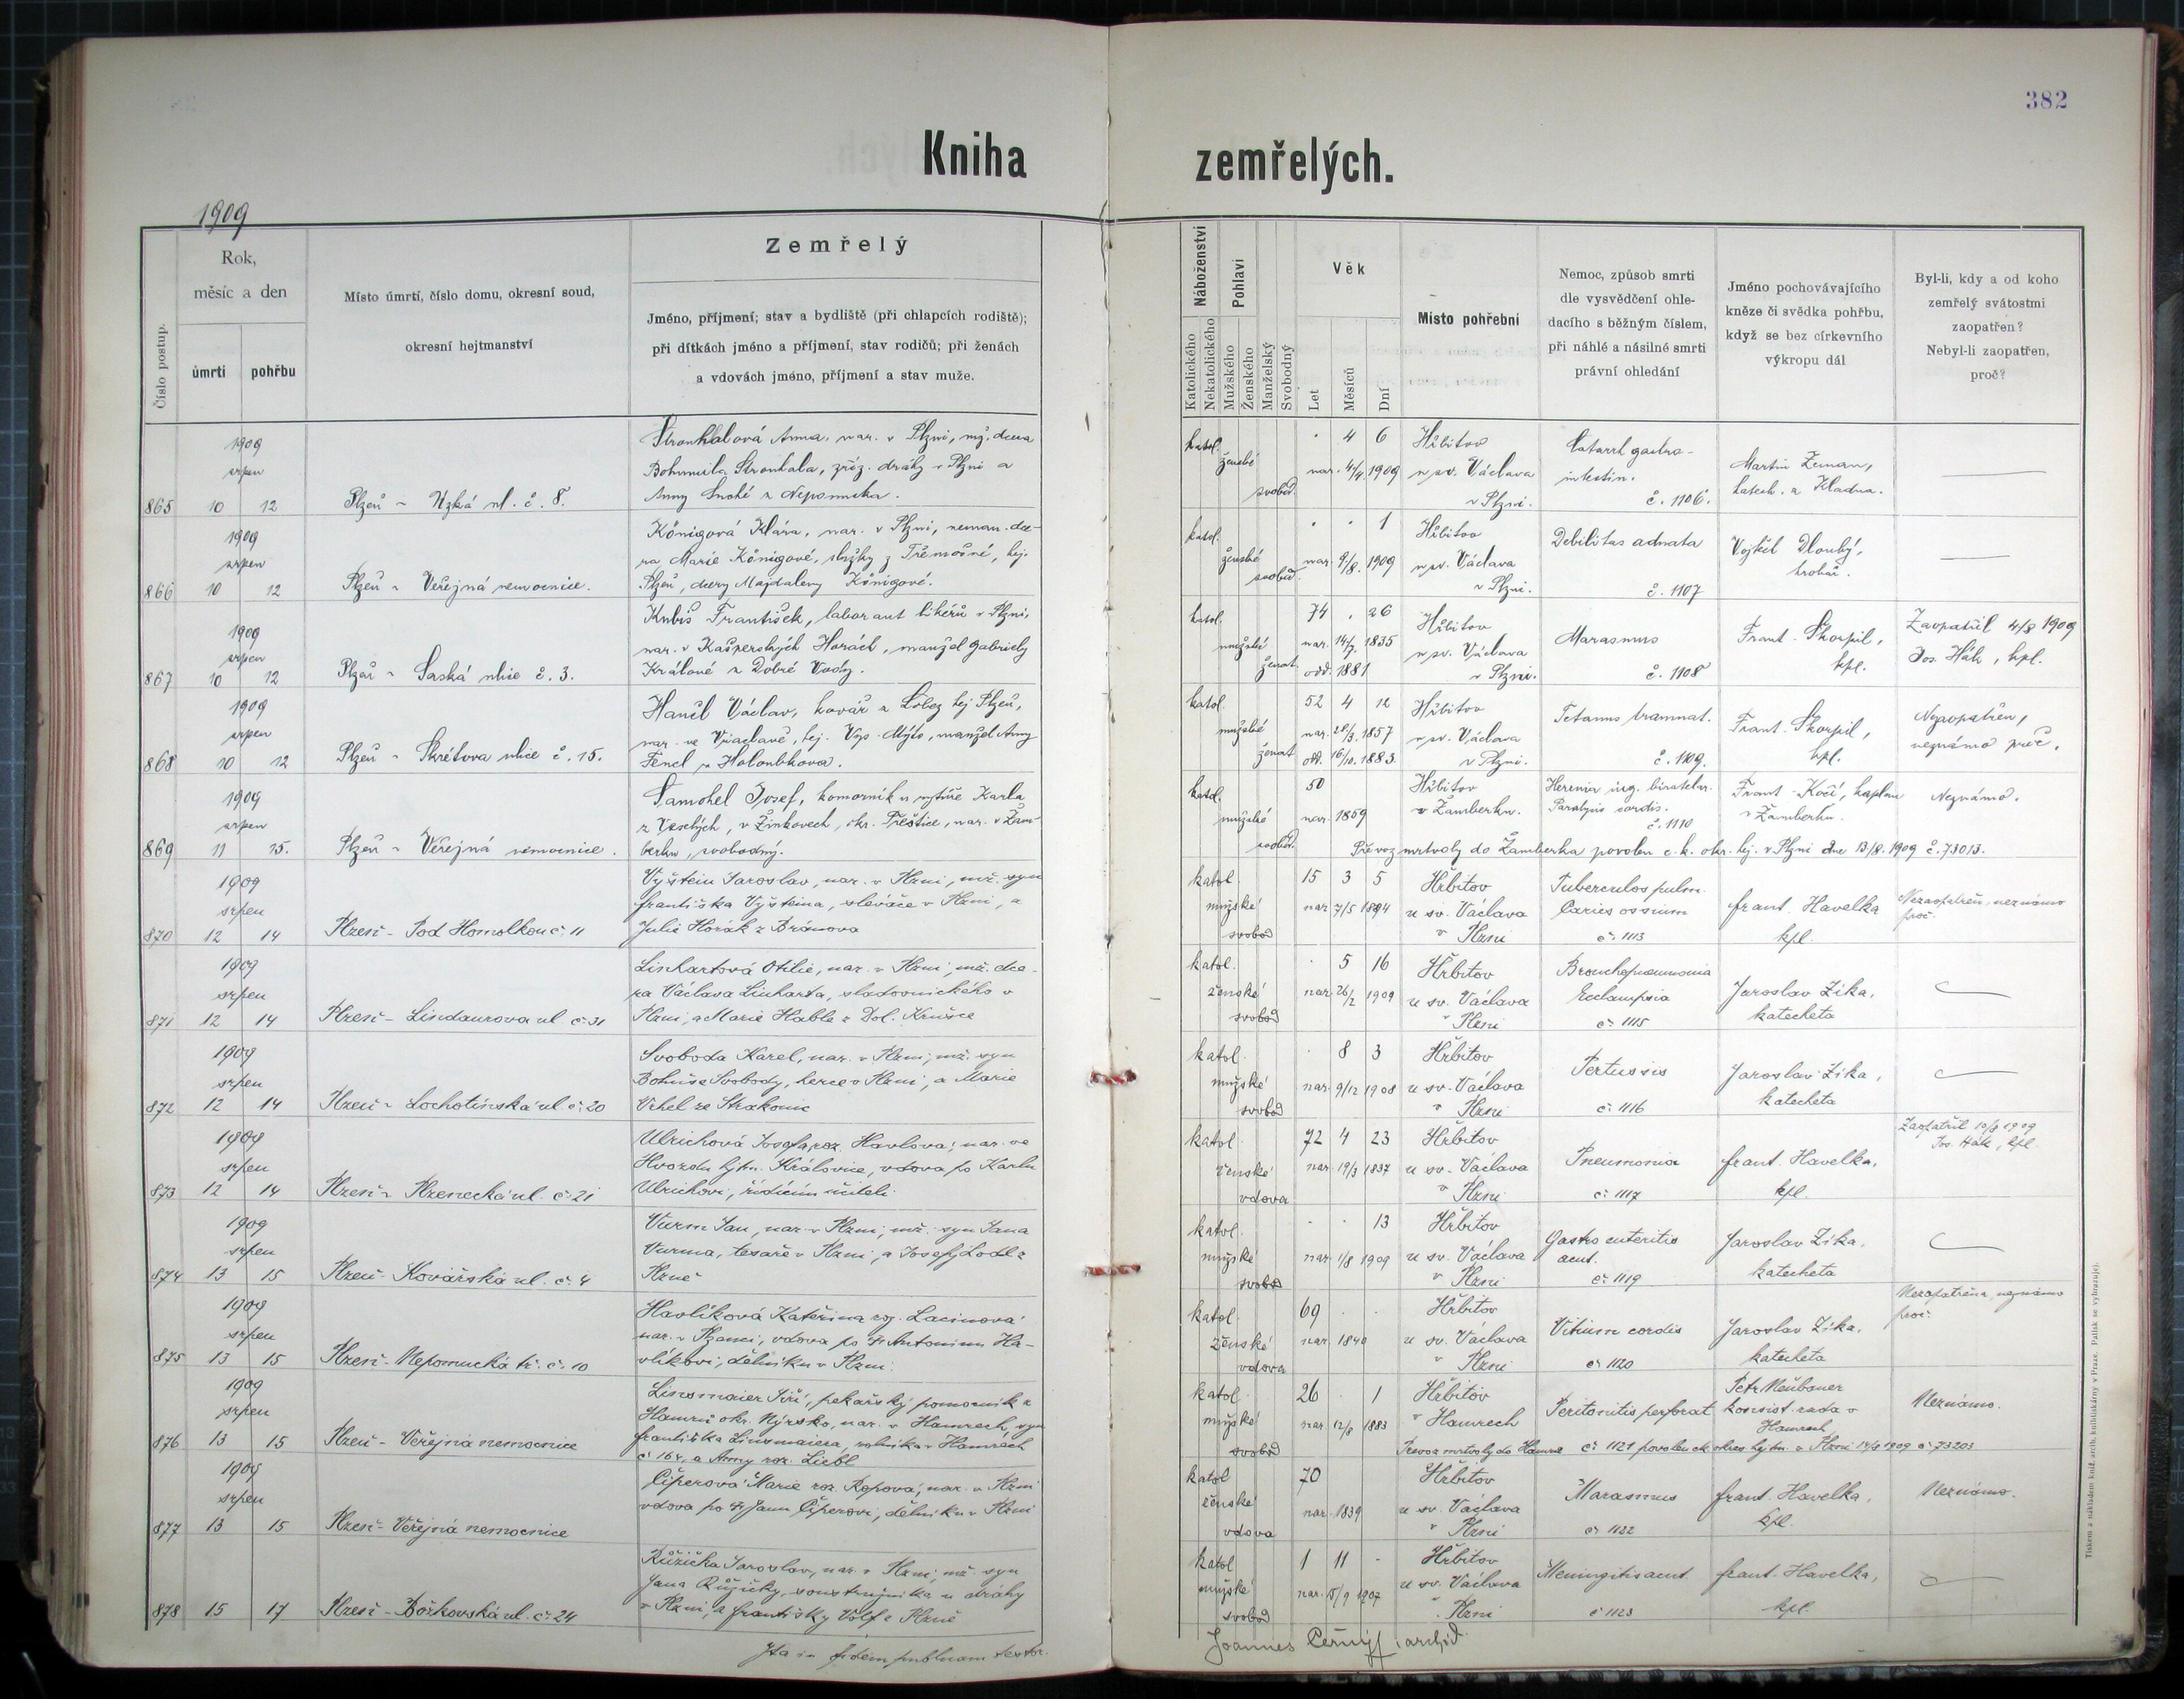 382
Kniha zemřelých.
1909
Číslo postup.
Rok,
měsíc a den
úmrtí
pohřbu
Místo úmrtí, číslo domu, okresní soud,
okresní hejtmanství
Zemřelý
Jméno, příjmení; stav a bydliště (při chlapcích rodiště);
při dítkách jméno a příjmení, stav rodičů; při ženách
a vdovách jméno, příjmení a stav muže.
Náboženství
Katolického
Nekatolického
Pohlaví
Mužského
Ženského
Manželský
Svobodný
Věk
Let
Měsíců
Dní
Místo pohřební
Nemoc, způsob smrti
dle vysvědčení ohle-
dacího s běžným číslem,
při náhlé a násilné smrti
právní ohledání
Jméno pochovávajícího
kněze či svědka pohřbu,
když se bez církevního
výkropu dál
Byl-li, kdy a od koho
zemřelý svátostmi
zaopatřen?
Nebyl-li zaopatřen,
proč?
1909
srpen
865 10 12 Plzeň - Úzká ul. č. 8.
Strouhalová Anna, nar. v Plzni, mž. dcera
Bohumila Strouhala, zříz. dráhy v Plzni a
Anny z Nepomuka.
katol. ženské svobod.
4 6
nar. 4/4 1909
Hřbitov
u sv. Václava
v Plzni.
Catarrh gastro-
intestin.
č. 1106.
Martin Zeman,
katech. z Kladna.
1909
srpen
866 10 12 Plzeň - Veřejná nemocnice.
Königová Klára, nar. v Plzni, neman. dce-
ra Marie Königové, služky z Třemošné, hej.
Plzeň, dcery Majdaleny Königové.
katol. ženské svobod.
1
nar. 9/8. 1909
Hřbitov
u sv. Václava
v Plzni.
Debilitas adnata
č. 1107
Vojtěch Dlouhý,
hrobař.
1909
srpen
867 10 12 Plzeň - Saská ulice č. 3.
Kubis František, laborant likérů v Plzni,
nar. v Kašperských Horách, manžel Gabriely
Králové z Dobré Vody.
katol. mužské ženat
74 . 26
nar. 14/7. 1835
odd. 1881
Hřbitov
u sv. Václava
v Plzni.
Marasmus
č. 1108
Frant. Škorpil,
kpl.
Zaopatřil 4/8 1909
Jos. Hák, kpl.
1909
srpen
868 10 12 Plzeň - Škrétova ulice č. 15.
Hančl Václav, kovář z Lobez hej. Plzeň,
nar. ve hej. Vys. Mýto, manžel Anny
Fencl z Holoubkova.
katol. mužské ženat
52 4 12
nar. 28/3. 1857
odd. 16/10. 1883.
Hřbitov
u sv. Václava
v Plzni.
Tetanus traumat.
č. 1109.
Frant. Škorpil,
kpl.
Nezaopatřen,
neznámo proč.
1909
srpen
869 11 15. Plzeň - Veřejná nemocnice.
Samohel Josef, komorník u rytíře Karla
z Veselých, v Žinkovech, okr. Přeštice, nar. v Žam-
berku, svobodný.
katol. mužské svobod.
50
nar. 1859
Hřbitov
v Žamberku.
Hernia ing. bilateralis.
Paralysis cordis.
č. 1110
Frant. Kočí, kaplan
v Žamberku.
Neznámo.
Převoz mrtvoly do Žamberka povolen c. k. okr. hej. v Plzni dne 13/8. 1909 č. 73013.
1909
srpen
870 12 14 Plzeň - Pod Homolkou č. 11
Vyštein Jaroslav, nar. v Plzni, mž. syn
Františka Vyšteina, slévače v Plzni, a
Julie Horák z Bránova
katol. mužské svobod
15 3 5
nar. 7/5 1894
Hřbitov
u sv. Václava
v Plzni
Tuberculos pulm.
Caries ossium
č. 1113
Frant. Havelka
kpl.
Nezaopatřen, neznámo
proč.
1909
srpen
871 12 14 Plzeň - Lindaurova ul. č. 31
Linhartová Otilie, nar. v Plzni, mž. dce-
ra Václava Linharta, sladovnického v
Plzni, a Marie Hable z Dol. Krušce
katol. ženské svobod
5 16
nar. 26/2 1909
Hřbitov
u sv. Václava
v Plzni
Bronchopneumonia
Eclampsia
č. 1115
Jaroslav Zíka,
katecheta
1909
srpen
872 12 14 Plzeň - Lochotínská ul. č. 20
Svoboda Karel, nar. v Plzni, mž. syn
Bohuše Svobody, herce v Plzni, a Marie
Vrhel ze Strakonic
katol. mužské svobod
8 3
nar. 9/12 1908
Hřbitov
u sv. Václava
v Plzni
Pertussis
č. 1116
Jaroslav Zíka,
katecheta
1909
srpen
873 12 14 Plzeň - Plzenecká ul. č. 21
Ulrichová Josefa, roz. Havlova, nar. ve
Hvozdu hjtm. Kralovice, vdova po Karlu
Ulrichovi, řídícím učiteli.
katol. ženské vdova
72 4 23
nar. 19/3 1837
Hřbitov
u sv. Václava
v Plzni
Pneumonia
č. 1117
Frant. Havelka,
kpl.
Zaopatřil 10/8 1909
Jos. Hák, kpl.
1909
srpen
874 13 15 Plzeň - Kovářská ul. č. 4
Vurm Jan, nar. v Plzni, mž. syn Jana
Vurma, tesaře v Plzni, a Josefy Lodl z
Plzně
katol. mužské svobod
13
nar. 1/8 1909
Hřbitov
u sv. Václava
v Plzni
Gastro enteritis
acut.
č. 1119
Jaroslav Zíka,
katecheta
1909
srpen
875 13 15 Plzeň - Nepomucká tř. č. 10
Havlíková Kateřina roz. Lacinová
nar. v vdova po † Antonínu Ha-
vlíkovi, dělníku v Plzni.
katol. ženské vdova
69
nar. 1840
Hřbitov
u sv. Václava
v Plzni
Vitium cordis
č. 1120
Jaroslav Zíka,
katecheta
Nezaopatřena, neznámo
proč.
1909
srpen
876 13 15 Plzeň - Veřejná nemocnice
Linsmaier Jiří, pekařský pomocník z
Hamrů okr. Nýrsko, nar. v Hamrech, syn
Františka Linsmaiera, rolníka v Hamrech
č. 164, a Anny roz. Liebl
katol. mužské svobod
26 . 1
nar. 12/8 1883
Hřbitov
v Hamrech
Peritonitis perforat
Petr Neubauer
konsist. rada v
Hamrech
Neznámo.
Převoz mrtvoly do Hamrů č. 1121 povolen ck okres. hjtm. v Plzni 14/8 1909 č. 73203
1909
srpen
877 13 15 Plzeň - Veřejná nemocnice
Čiperová Marie roz. Ropova, nar. v Plzni
vdova po † Janu Čiperovi, dělníku v Plzni
katol. ženské vdova
70
nar. 1839
Hřbitov
u sv. Václava
v Plzni
Marasmus
č. 1122
Frant. Havelka,
kpl.
Neznámo.
878 15 17 Plzeň - Božkovská ul. č. 24
Růžička Jaroslav, nar. v Plzni, mž. syn
Jana Růžičky, soustružníka u dráhy
v Plzni, a Františky Völfl z Plzně
katol. mužské svobod
1 11 -
nar. 15/9 1907
Hřbitov
u sv. Václava
v Plzni
Meningitis acut.
č. 1123
Frant. Havelka,
kpl.
Ita in fidem publicam testor.
Joannes Černý archid.
Tiskem a nákladem kníž. arcib. knihtiskárny v Praze. Patisk se vyhrazuje.